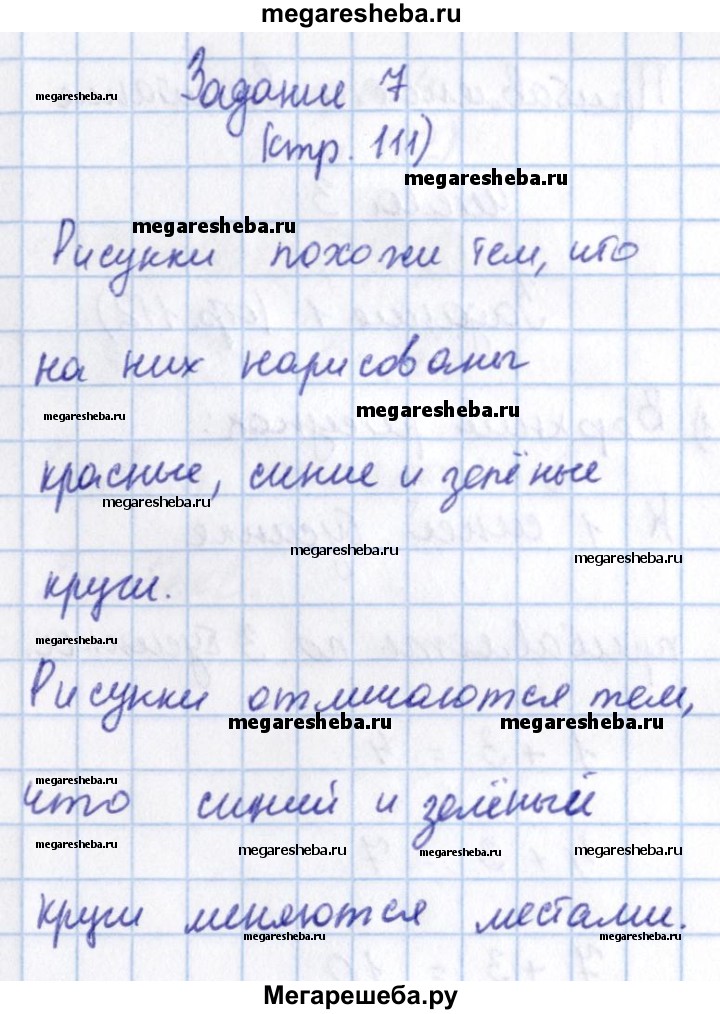 megaresheba.ru
Задание 7
megaresheba.ru
(стр. 111)
megaresheba.ru
megaresheba.ru
Рисунки похожи тем, что
на них нарисованы
megaresheba.ru
megaresheba.ru
красные, синие и зелёные
megaresheba.ru
megaresheba.ru
megaresheba.ru
круги.
megaresheba.ru
Рисунки отличаются тем,
megaresheba.ru
megaresheba.ru
megaresheba.ru
что синий и зелёный
megaresheba.ru
megaresheba.ru
megaresheba.ru
megaresheba.ru
круги меняются местами.
megaresheba.ru
megaresheba.ru
Мегарешеба.ру